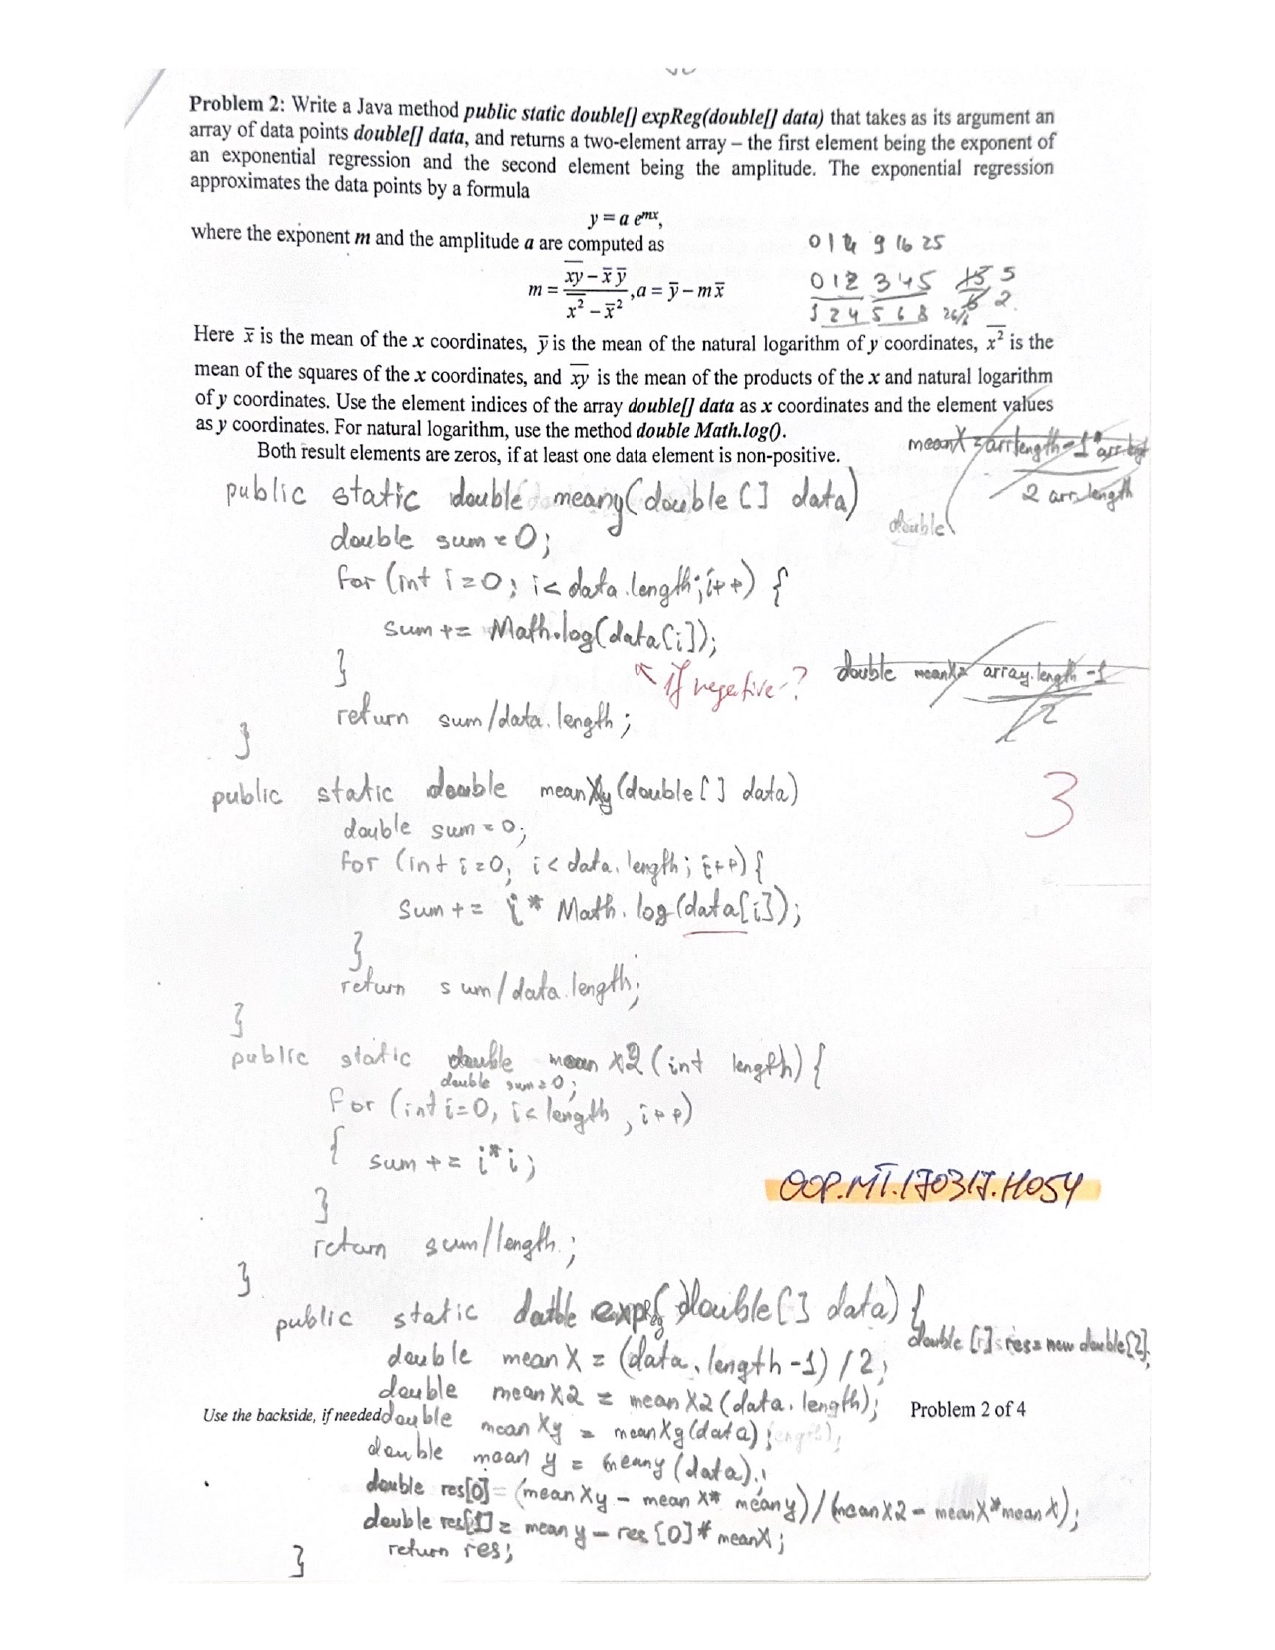 Problem 2: Write a Java method public static double[] expReg(double[] data) that takes as its argument an
array of data points double[] data, and returns a two-element array – the first element being the exponent of
an exponential regression and the second element being the amplitude. The exponential regression
approximates the data points by a formula
y = a e^{mx},
where the exponent m and the amplitude a are computed as
0 1 4 9 16 25
m = \frac{\overline{xy} - \bar{x}\,\bar{y}}{\overline{x^2} - \bar{x}^2}, a = \bar{y} - m\bar{x}
0 1 2 3 4 5 15 5
6 2.
3 2 4 5 6 8 26/6
Here x̄ is the mean of the x coordinates, ȳ is the mean of the natural logarithm of y coordinates, \overline{x^2} is the
mean of the squares of the x coordinates, and \overline{xy} is the mean of the products of the x and natural logarithm
of y coordinates. Use the element indices of the array double[] data as x coordinates and the element values
as y coordinates. For natural logarithm, use the method double Math.log().
Both result elements are zeros, if at least one data element is non-positive.
meanX = arr.length-1 *
2 arr.length
public static double meany(double [] data)
double
double sum = 0;
for (int i=0; i< data.length; i++) {
sum += Math.log(data[i]);
}
if negative-?
double meanX= array.length -1
2
return sum/data.length;
}
3
public static double meanXy(double [] data)
double sum = 0;
for (int i=0; i< data.length; i++) {
sum += i* Math.log(data[i]);
}
return sum/data.length;
}
public static double mean X2 (int length) {
double sum=0;
for (int i=0, i< length , i++)
{ sum += i*i;
OOP.MT.170317.H054
}
return sum/length;
}
public static double expReg(double [] data) {
double [] res= new double[2];
double mean X = (data.length -1) /2;
double mean X2 = mean X2 (data.length);
Use the backside, if needed
Problem 2 of 4
double mean Xy = mean Xy (data);
double mean y = meany (data);
double res[0] = (mean Xy - mean X* meany) / (mean X2 - meanX*mean X);
double res[1] = mean y - res [0] * meanX;
return res;
}